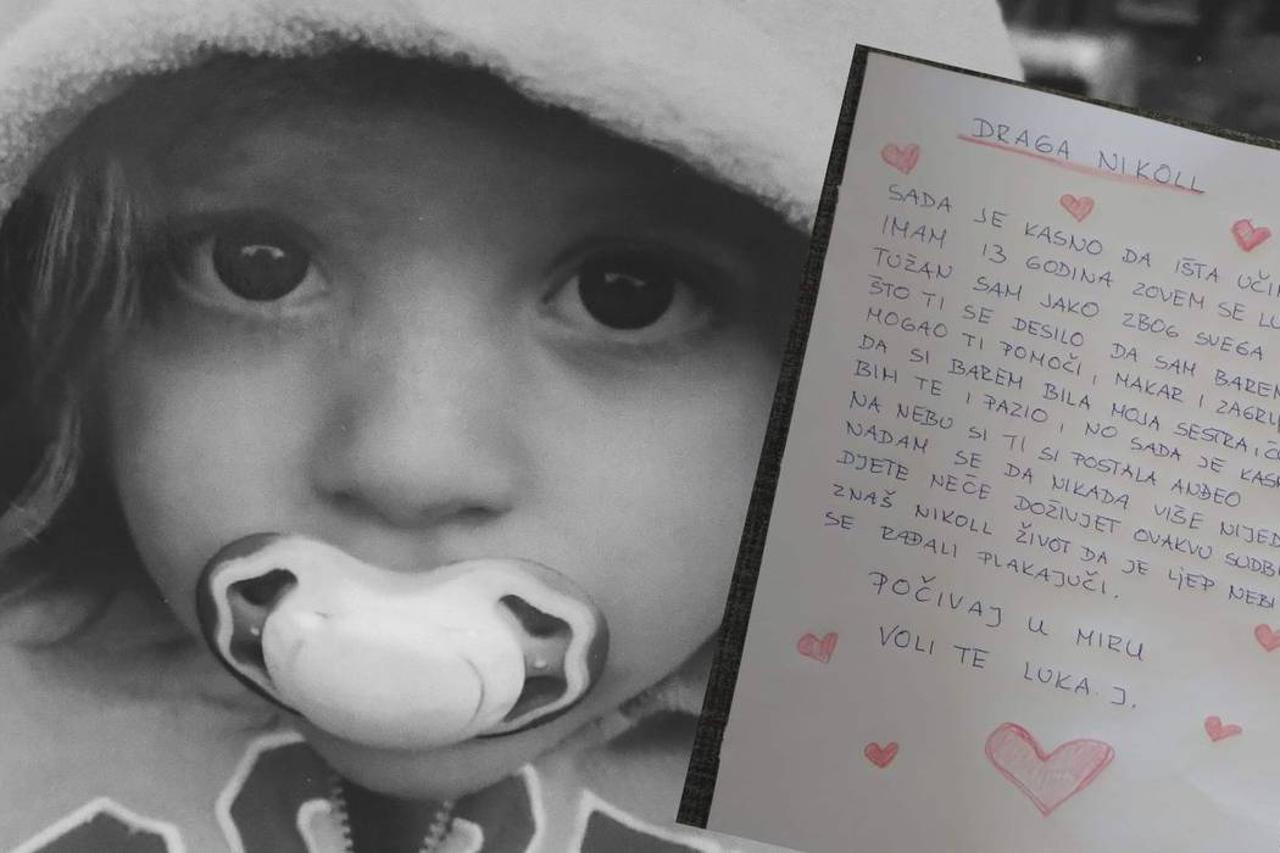 DRAGA NIKOLL
SADA JE KASNO DA IŠTA
IMAM 13 GODINA ZOVEM SE
TUŽAN SAM JAKO ZBOG SVEGA
ŠTO TI SE DESILO DA SAM BAREM
MOGAO TI POMOČI, MAKAR I
DA SI BAREM BILA MOJA SESTRA,
BIH TE I PAZIO, NO SADA JE
NA NEBU SI TI SI POSTALA ANĐEO
NADAM SE DA NIKADA VIŠE
DJETE NEČE DOŽIVJET OVAKVU
ZNAŠ NIKOLL ŽIVOT DA JE LJEP NEBI
SE RAĐALI PLAKAJUČI.
POČIVAJ U MIRU
VOLI TE LUKA. J.